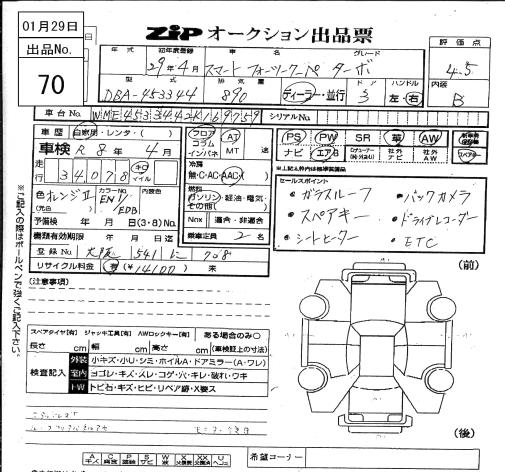 01月29日
出品No.
70
ZIP オークション出品票
年式 初年度登録 車名 グレード 評価点
29年4月 スマート フォーツークーペ ターボ 4.5
型式 排気量 ドア ハンドル 内装
DBA-453344 890 ディーラー・並行 3 左・右 B
車台No. WME4533442K169759 シリアルNo.
車歴 自家用・レンタ・( ) フロア AT PS PW SR 革 AW
車検 R 8年 4月 コラム インパネ MT ナビ エアB 社外ナビ 社外AW
走行 34,078 キロ マイル 冷房 無・C・AC・AAC
色 オレンジII カラーNo. EN1/EDB 内装色
(元色) 燃料 ガソリン・軽油・電気・その他( )
予備検 年 月 日(3・8)No. Nox 適合・非適合
書類有効期限 年 月 日迄 乗車定員 2名
登録No. 大阪 541 に 708
リサイクル料金 有(¥14100) 未
セールスポイント
・ガラスルーフ ・バックカメラ
・スペアキー ・ドライブレコーダー
・シートヒーター ・ETC
※ご記入の際はボールペンで強くご記入下さい。
(注意事項)
(前)
スペアタイヤ[有] ジャッキ工具[有] AWロックキー[有] ある場合のみ○
長さ cm 幅 cm 高さ cm (車検証上の寸法)
検査記入 外装 小キズ・小リ・シミ・ホイルA・ドアミラー(A・ワレ)
室内 ヨゴレ・キズ・スレ・コゲ・穴・キレ・破れ・ウキ
FW トビ石・キズ・ヒビ・リペア跡・X要ス
(後)
希望コーナー